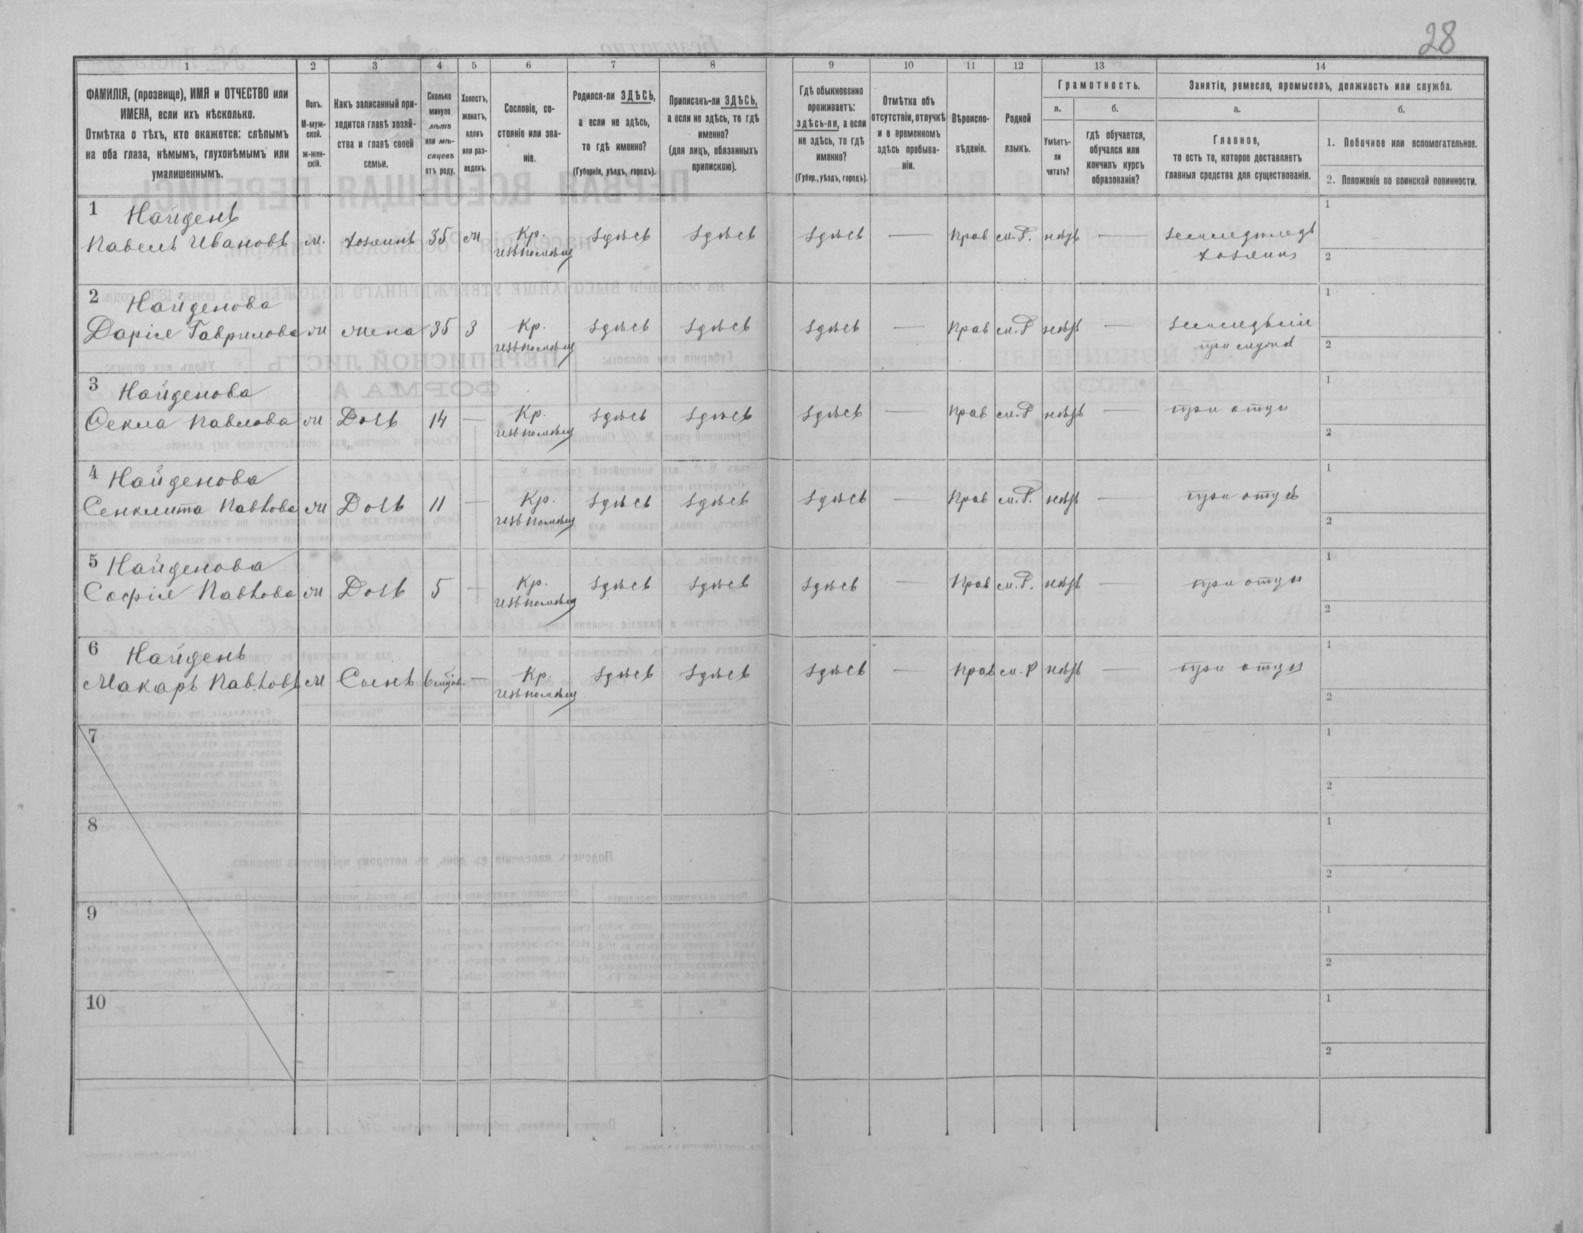 28
1
2
3
4
5
6
7
8
9
10
11
12
13
14
ФАМИЛІЯ, (прозвище), ИМЯ и ОТЧЕСТВО или
ИМЕНА, если ихъ нѣсколько.
Отмѣтка о тѣхъ, кто окажется: слѣпымъ
на оба глаза, нѣмымъ, глухонѣмымъ или
умалишеннымъ.
Полъ.
М-муж-
ской.
ж-жен-
скій.
Какъ записанный при-
ходится главѣ хозяй-
ства и главѣ своей
семьи.
Сколько
минуло
лѣтъ
или мѣ-
сяцевъ
отъ роду.
Холостъ,
женатъ,
вдовъ
или раз-
веденъ.
Сословіе, со-
стояніе или зва-
ніе.
Родился-ли ЗДѢСЬ,
а если не здѣсь,
то гдѣ именно?
(Губернія, уѣздъ, городъ).
Приписанъ-ли ЗДѢСЬ,
а если не здѣсь, то гдѣ
именно?
(для лицъ, обязанныхъ
припискою).
Гдѣ обыкновенно
проживаетъ:
здѣсь-ли, а если
не здѣсь, то гдѣ
именно?
(Губер., уѣздъ, городъ).
Отмѣтка объ
отсутствіи, отлучкѣ
и о временномъ
здѣсь пребыва-
ніи.
Вѣроиспо-
вѣданіе.
Родной
языкъ.
Грамотность.
а.
б.
Умѣетъ-
ли
читать?
гдѣ обучается,
обучался или
кончилъ курсъ
образованія?
Занятіе, ремесло, промыселъ, должность или служба.
а.
б.
Главное,
то есть то, которое доставляетъ
главныя средства для существованія.
1. Побочное или вспомогательное.
2. Положеніе по воинской повинности.
1 Найденъ
Павелъ Ивановъ м. хозяинъ 35 ж Кр. здѣсь здѣсь здѣсь — Прав м.Р. нѣтъ —
хозяинъ
1
2
2 Найденова
Дарія Гаврилова ж жена 35 з Кр. здѣсь здѣсь здѣсь — Прав м.Р нѣтъ —
1
2
3 Найденова
Ѳекла Павлова ж Дочь 14 — Кр. здѣсь здѣсь здѣсь — Прав м.Р нѣтъ — при отцѣ
1
2
4 Найденова
Сенклита Павлова ж Дочь 11 — Кр. здѣсь здѣсь здѣсь — Прав м.Р. нѣтъ — при отцѣ
1
2
5 Найденова
Софія Павлова ж Дочь 5 — Кр. здѣсь здѣсь здѣсь — Прав м.Р. нѣтъ — при отцѣ
1
2
6 Найденъ
Макаръ Павловъ м Сынъ 6 — Кр. здѣсь здѣсь здѣсь — Прав м.Р нѣтъ — при отцѣ
1
2
7
1
2
8
1
2
9
1
2
10
1
2